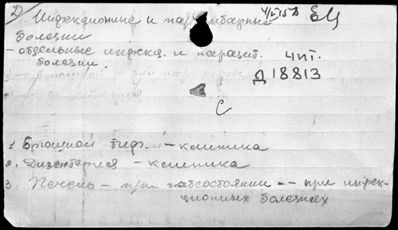 2) Инфекционные и паразитарные 4/VI 15 д ЕЦ
болезни
- отдельные инфекц. и паразит. чит.
болезни Д 18813
С
1. Брюшной тиф - клиника
2. Дизентерия - клиника
3 Печень - при -- при инфек-
ционных болезнях